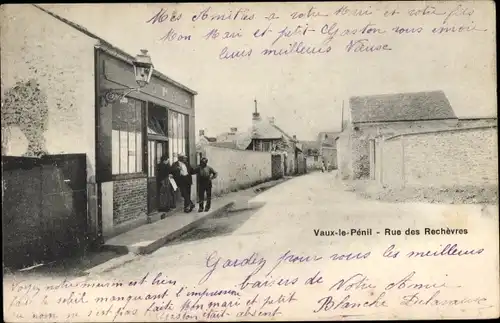 Mes Amitiés a votre Mari et votre fils
Mon Mari et petit Gaston vous envoie
leurs meilleurs Vause
Vaux-le-Pénil - Rue des Rechèvres
Gardez pour vous les meilleurs
baisers de Votre Amie
Blanche
Voyez notre maison est bien
fait le soleil manquant l'impression
nous ne s'est pas faite Mon mari et petit
Gaston était absent